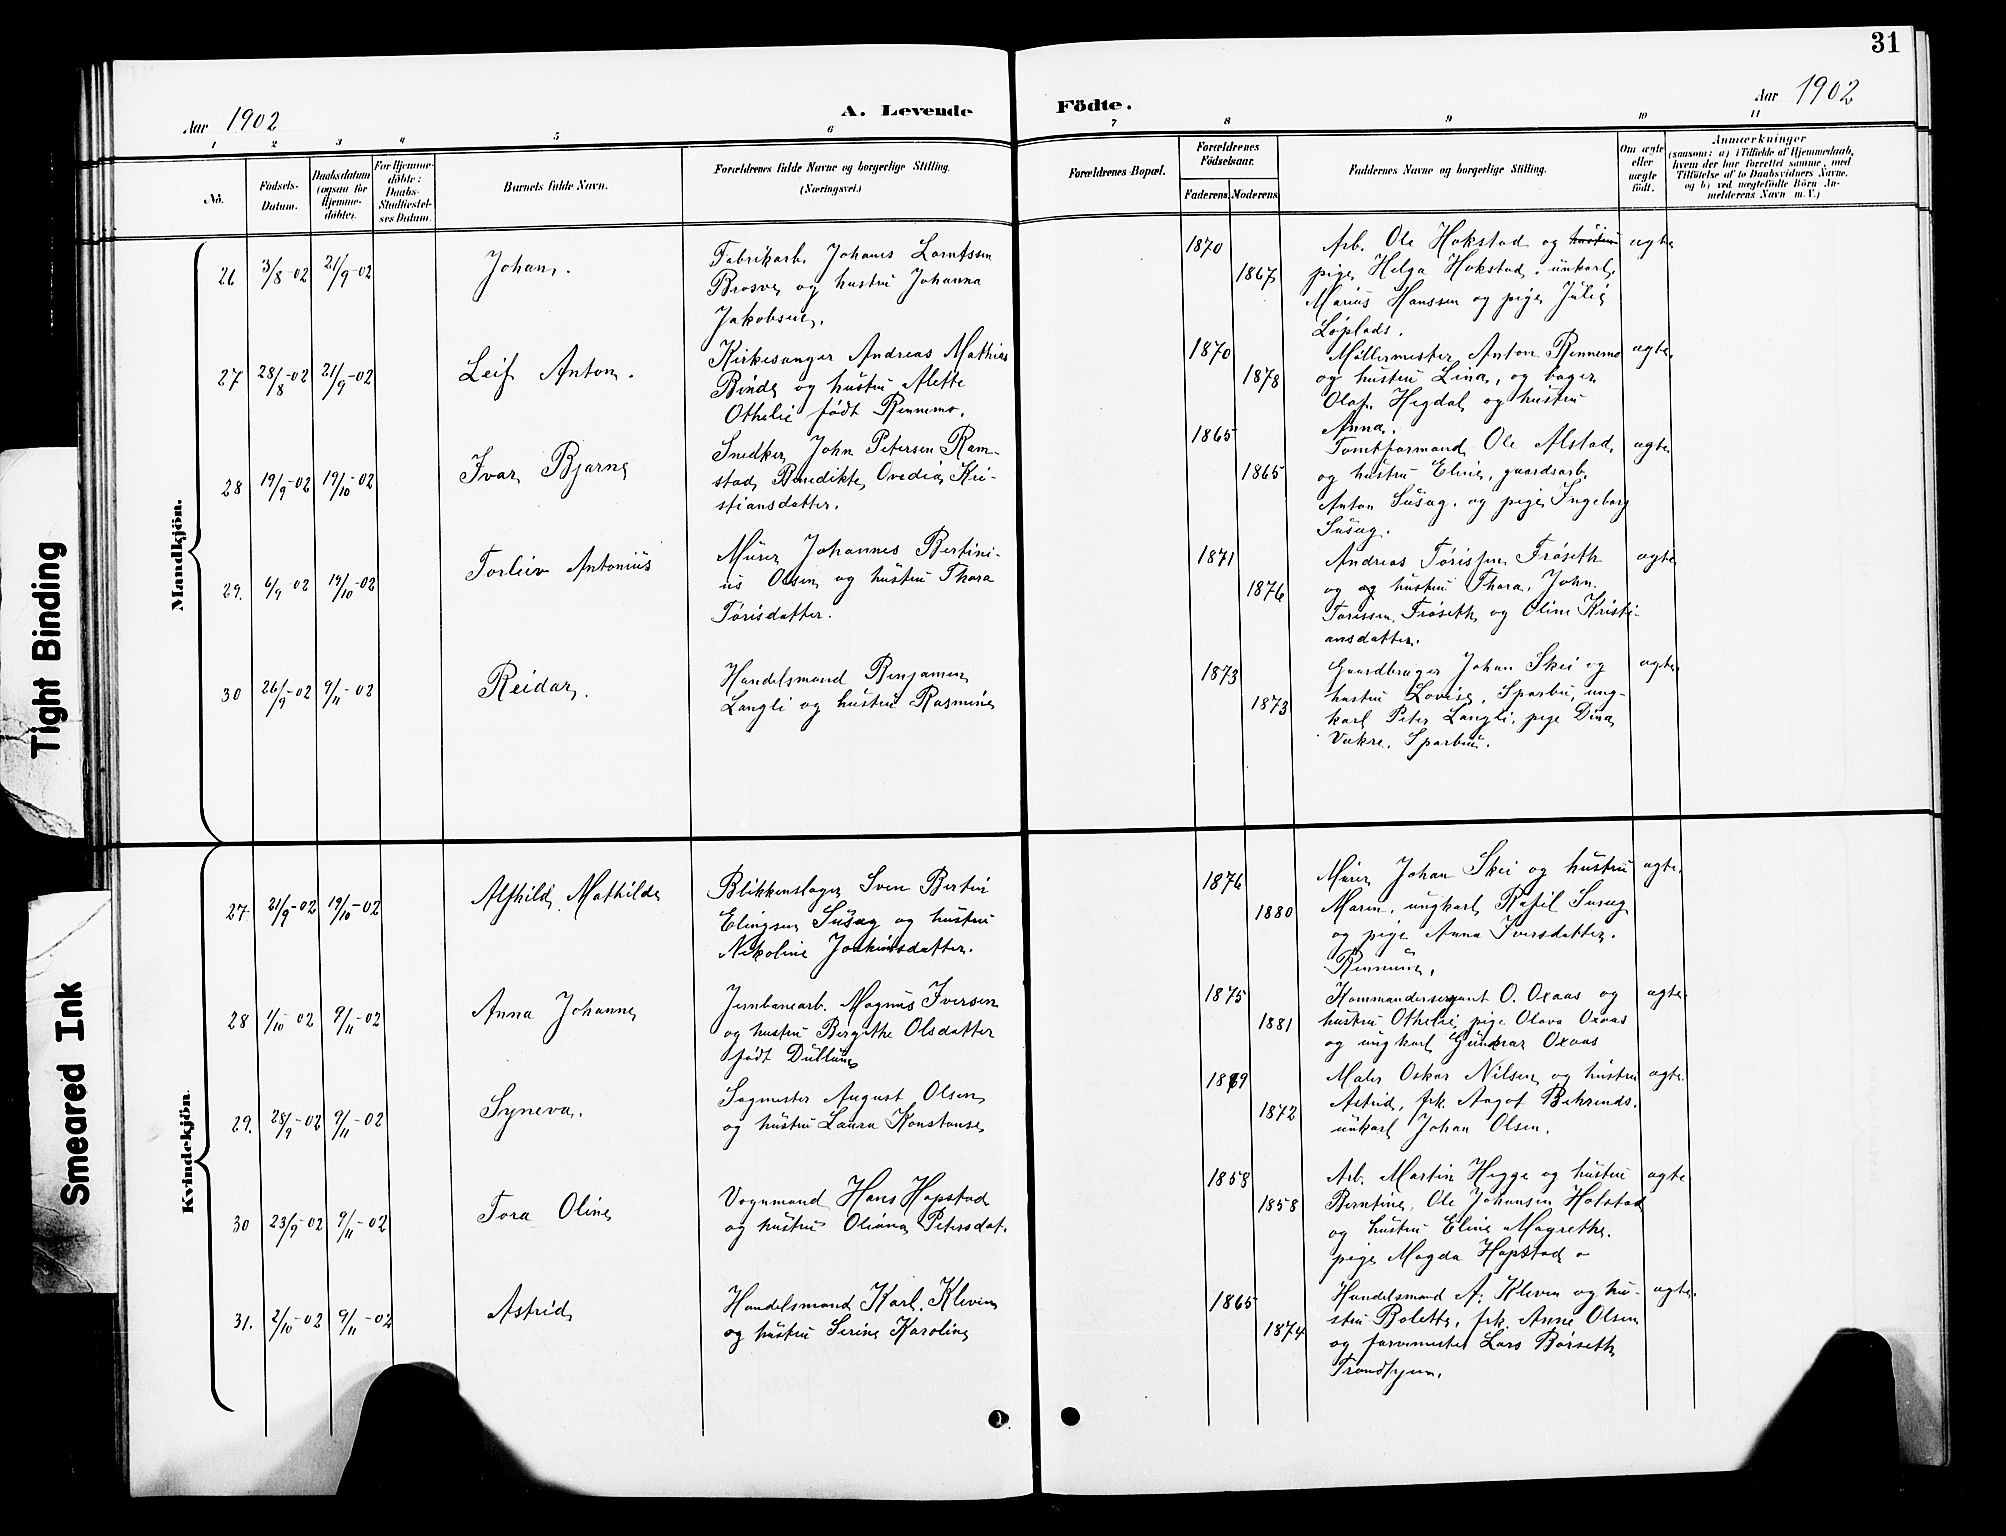 31
Aar 1902
A. Levende
Födte.
Aar 1902
1 2 3 4 5 6 7 8 9 10 11
Nö.
Födsels-
Datum.
Daabsdatum
(ogsaa for
Hjemme-
döbte).
For Hjemme-
döbte:
Daabs-
Stadfæstel-
ses Datum.
Barnets fulde Navn.
Forældrenes fulde Navne og borgerlige Stilling.
(Næringsvei.)
Forældrenes Bopæl.
Forældrenes
Födselsaar.
Faderens. Moderens.
Faddernes Navne og borgerlige Stilling.
Om ægte
eller
uægte
födt.
Anmærkninger
(saasom: a) i Tilfælde af Hjemmedaab,
hvem der har forrettet samme, med
Tilföielse af to Daabsvidners Navne.
og b) ved uægtefödte Börn An-
melderens Navn m. V.)
Mandkjön.
26 3/8-02 21/9-02 Johan.
Fabrikarb. Johans Lorntssen
Brosve og hustru Johanna
Jakobsen.
1870
1867
Arb. Ole Hokstad og hustru
pige Helga Hokstad. unkarl.
Marius Hanssen og pige Julie
Løplads.
ægte
27 28/8-02 21/9-02 Leif Anton.
Kirkesanger Andreas Mathias
Binde og hustru Alette
Othelie født Rennemo.
1870
1878
Møllermester Anton Rennemo
og hustru Lina, og bager
Olaf Hegdal og hustru
Anna.
ægte
28 19/9-02 19/10-02 Ivar Bjarne
Snedker John Petersen Ram-
stad Benedikte Ovedia Kri-
stiansdatter.
1865
1865
Tomtformand Ole Alstad
og hustru Eline, gaardsarb.
Anton Susag. og pige Ingeborg
Susag.
ægte
29. 6/9-02 19/10-02 Torleiv Antonius
Murer Johannes Bertini-
us Olsen og hustru Thora
Torisdatter.
1871
1876
Andreas Torissen Frøseth
og og hustru Thora, John
Torissen Frøseth og Oline Kristi-
ansdatter.
ægte
30 26/9-02 9/11-02 Reidar.
Handelsmand Benjamin
Langli og hustru Rasmine
1873
1873
Gaardbruger Johan Skei og
hustru Lovise, Sparbu, ung-
karl Peter Langli, pige Dina
Vakre, Sparbu.
ægte
Kvindekjön.
27. 21/9-02 19/10-02 Alfhild Mathilde
Blikkenslager Sven Bertin
Elingsen Susag og hustru
Nikoline Joakimsdatter.
1876
1880
Murer Johan Skei og hustru
Maren, ungkarl Rafil Susag
og pige Anna Iversdatter.
ægte
28 1/10 02 9/11-02 Anna Johanne
Jernbanearb. Magnus Iversen
og hustru Bergithe Olsdatter
født Dullum
1875
1881
Kommandersergeant O. Oxaas og
hustru Othelie, pige Olava Oxaas
og ungkarl Gunnar Oxaas
ægte
29. 28/9-02 9/11-02 Syneva.
Sagmester August Olsen
og hustru Laura Konstanse
1869
1872
Maler Oskar Nilsen og hustru
Astrid, frk. Aagot Behrends.
unkarl Johan Olsen.
ægte
30 23/9-02 9/11-02 Tora Oline
Vognmand Hans Hopstad
og hustru Oliana Petersdat.
1858
1858
Arb. Martin Hegge og hustru
Berntine, Ole Johansen Hofstad
og hustru Eline Magrethe.
pige Magda Hopstad
ægte
31. 2/10-02 9/11-02 Astrid
Handelsmand Karl Kleven
og hustru Serine Karoline
1865
1874
Handelsmand A. Kleven og hu-
stru Bolette, frk. Anne Olsen
og farvemester Lars Børseth
Trondhjem.
ægte
Tight Binding
Smeared Ink